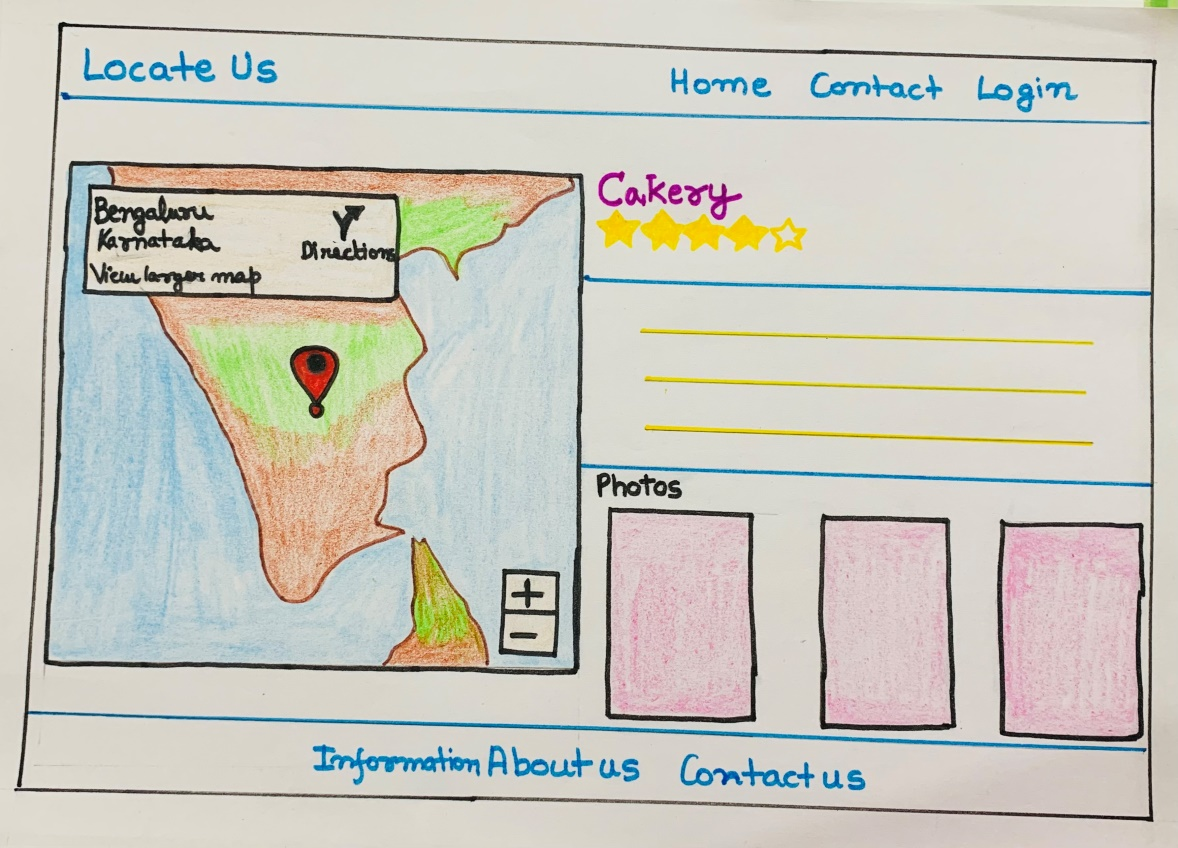 Locate Us
Home Contact Login
Bengaluru
Karnataka
Directions
View larger map
+
-
Cakery
Photos
Information About us Contact us